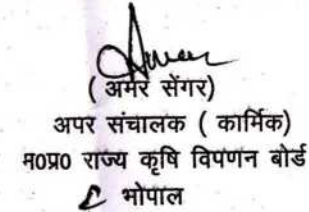 ( अमर सेंगर)
अपर संचालक ( कार्मिक)
म0प्र0 राज्य कृषि विपणन बोर्ड
भोपाल